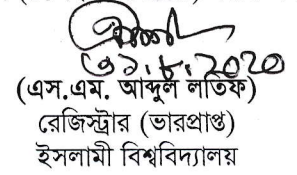 ৩১.৮.2020
(এস.এম. আব্দুল লতিফ)
রেজিস্ট্রার (ভারপ্রাপ্ত)
ইসলামী বিশ্ববিদ্যালয়